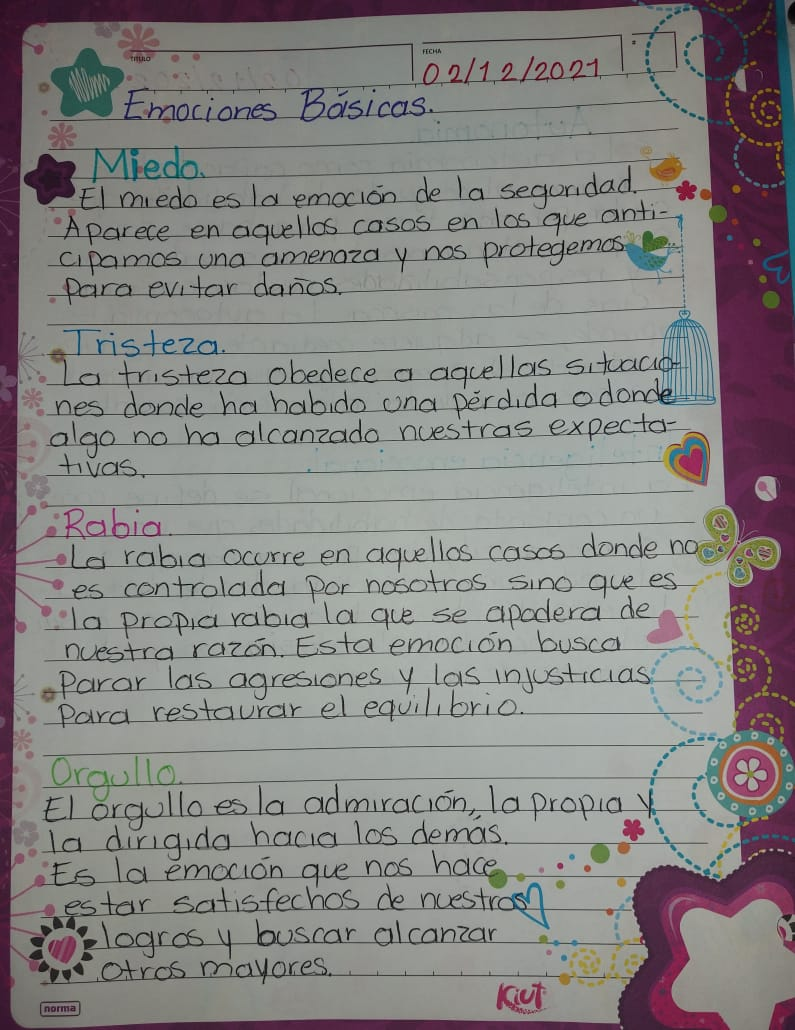 TITULO
FECHA
02/12/2021
Emociones Básicas.
Miedo.
El miedo es la emoción de la seguridad.
Aparece en aquellos casos en los que anti-
cipamos una amenaza y nos protegemos
para evitar daños.
Tristeza.
La tristeza obedece a aquellas situacio-
nes donde ha habido una pérdida o donde
algo no ha alcanzado nuestras expecta-
tivas.
Rabia.
La rabia ocurre en aquellos casos donde no
es controlada por nosotros sino que es
la propia rabia la que se apodera de
nuestra razón. Esta emoción busca
Parar las agresiones y las injusticias
Para restaurar el equilibrio.
Orgullo.
El orgullo es la admiración, la propia y
la dirigida hacia los demás.
Es la emoción que nos hace
estar satisfechos de nuestros
logros y buscar alcanzar
otros mayores.
norma
Kiut